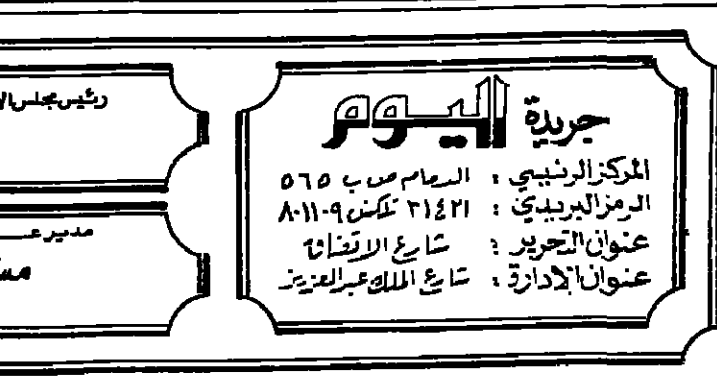 جريدة اليوم
المركز الرئيسي : الدمام ص ب ٥٦٥
الرمز البريدي : ٣١٤٢١ تلكس ٨٠١١٠٩
عنوان التحرير : شارع الاتفاق
عنوان الادارة : شارع الملك عبدالعزيز
رئيس مجلس الا
مدير عـ